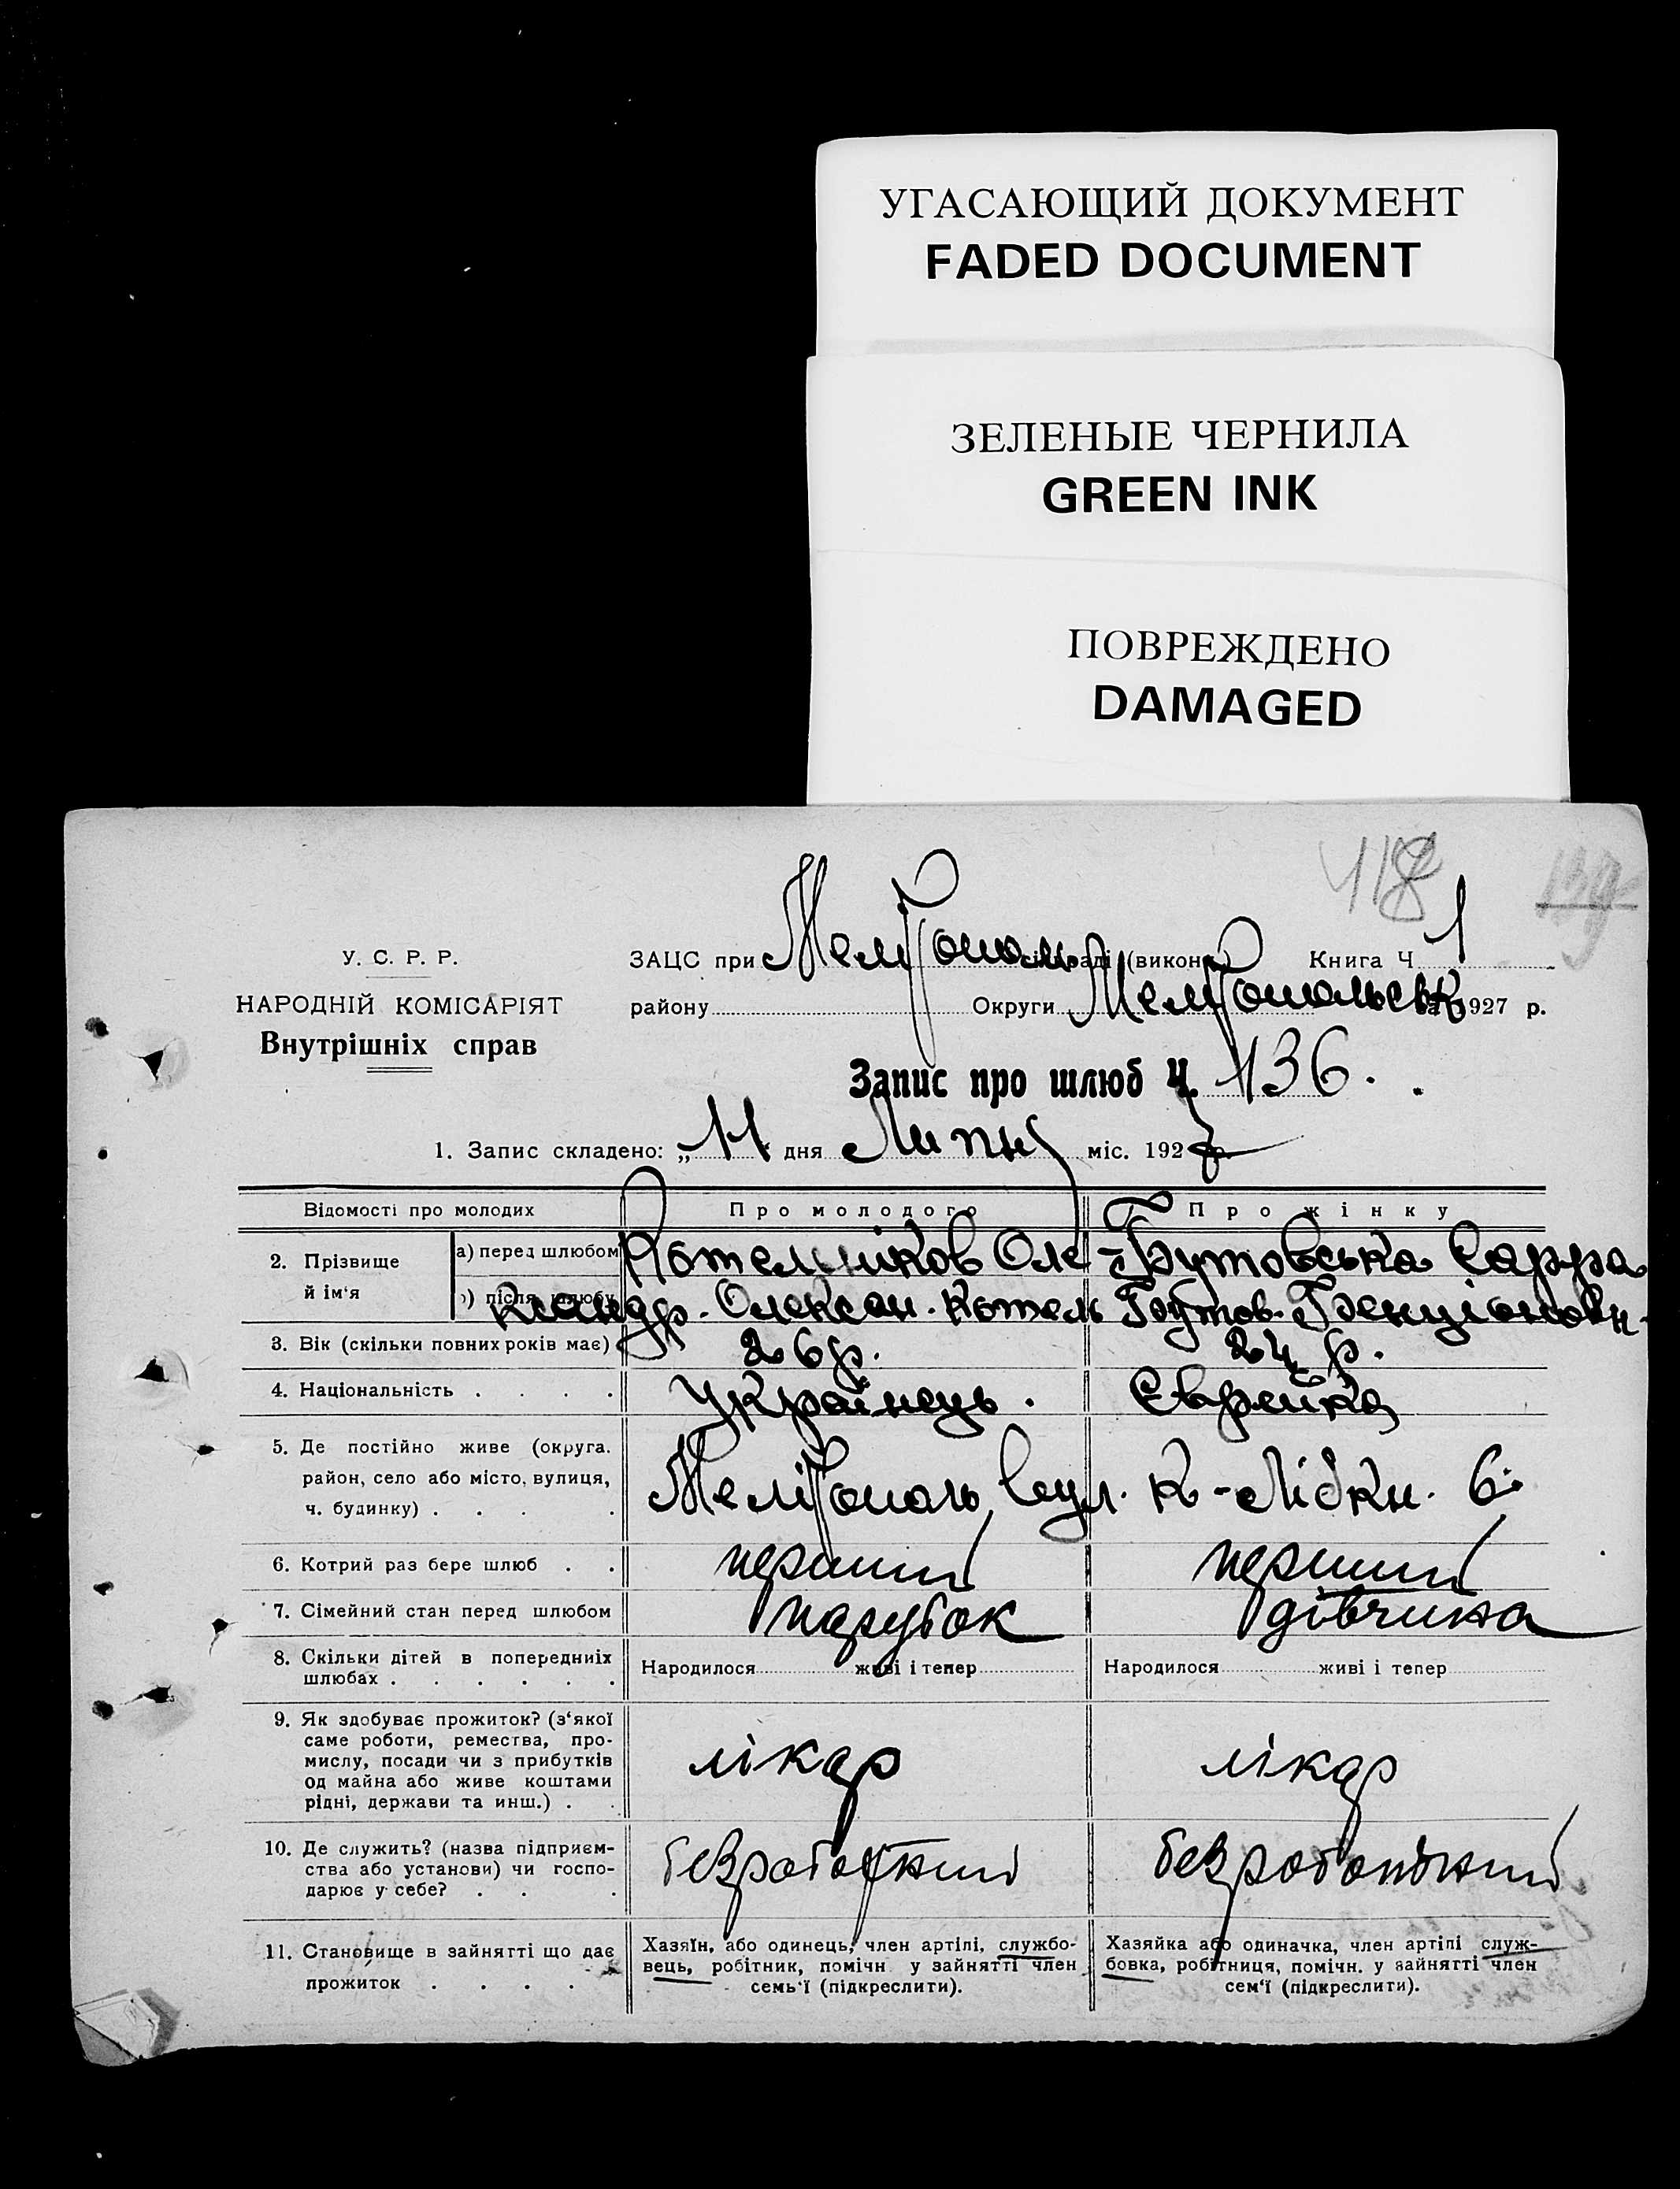 УГАСАЮЩИЙ ДОКУМЕНТ
FADED DOCUMENT
ЗЕЛЕНЫЕ ЧЕРНИЛА
GREEN INK
ПОВРЕЖДЕНО
DAMAGED
118
У. С. Р. Р.
НАРОДНІЙ КОМІСАРІЯТ
Внутрішніх справ
ЗАЦС при Мелітополь (викон.) Книга Ч. 1
району Округи Мелітопольськ за 1927 р.
Запис про шлюб Ч. 136.
1. Запис складено: „11" дня Липня міс. 1927 р.
Відомості про молодих Про молодого Про жінку
2. Прізвище й ім'я
а) перед шлюбом Котельніков Оле- Гутовська Сарра
б) після шлюбу ксандр. Олексан. Котель
3. Вік (скільки повних років має) 26 р. 24 р.
4. Національність . . . . Українець. Єврейка
5. Де постійно живе (округа.
район, село або місто, вулиця,
ч. будинку) . . . . Мелітополь, вул. К-Лібкн. 6
6. Котрий раз бере шлюб . . перший перший
7. Сімейний стан перед шлюбом парубок дівчина
8. Скільки дітей в попередниіх
шлюбах . . . . . . Народилося живі і тепер Народилося живі і тепер
9. Як здобуває прожиток? (з'якої
саме роботи, ремества, про-
мислу, посади чи з прибутків
од майна або живе коштами
рідні, держави та инш.) . . лікар лікар
10. Де служить? (назва підприєм-
ства або установи) чи госпо-
дарює у себе? . . . безроботний безробітний
11. Становище в зайнятті що дає
прожиток . . . .
Хазяїн, або одинець, член артілі, службо-
вець, робітник, помічн. у зайнятті член
семь'ї (підкреслити).
Хазяйка або одиначка, член артілі служ-
бовка, робітниця, помічн. у зайнятті член
сем'ї (підкреслити).